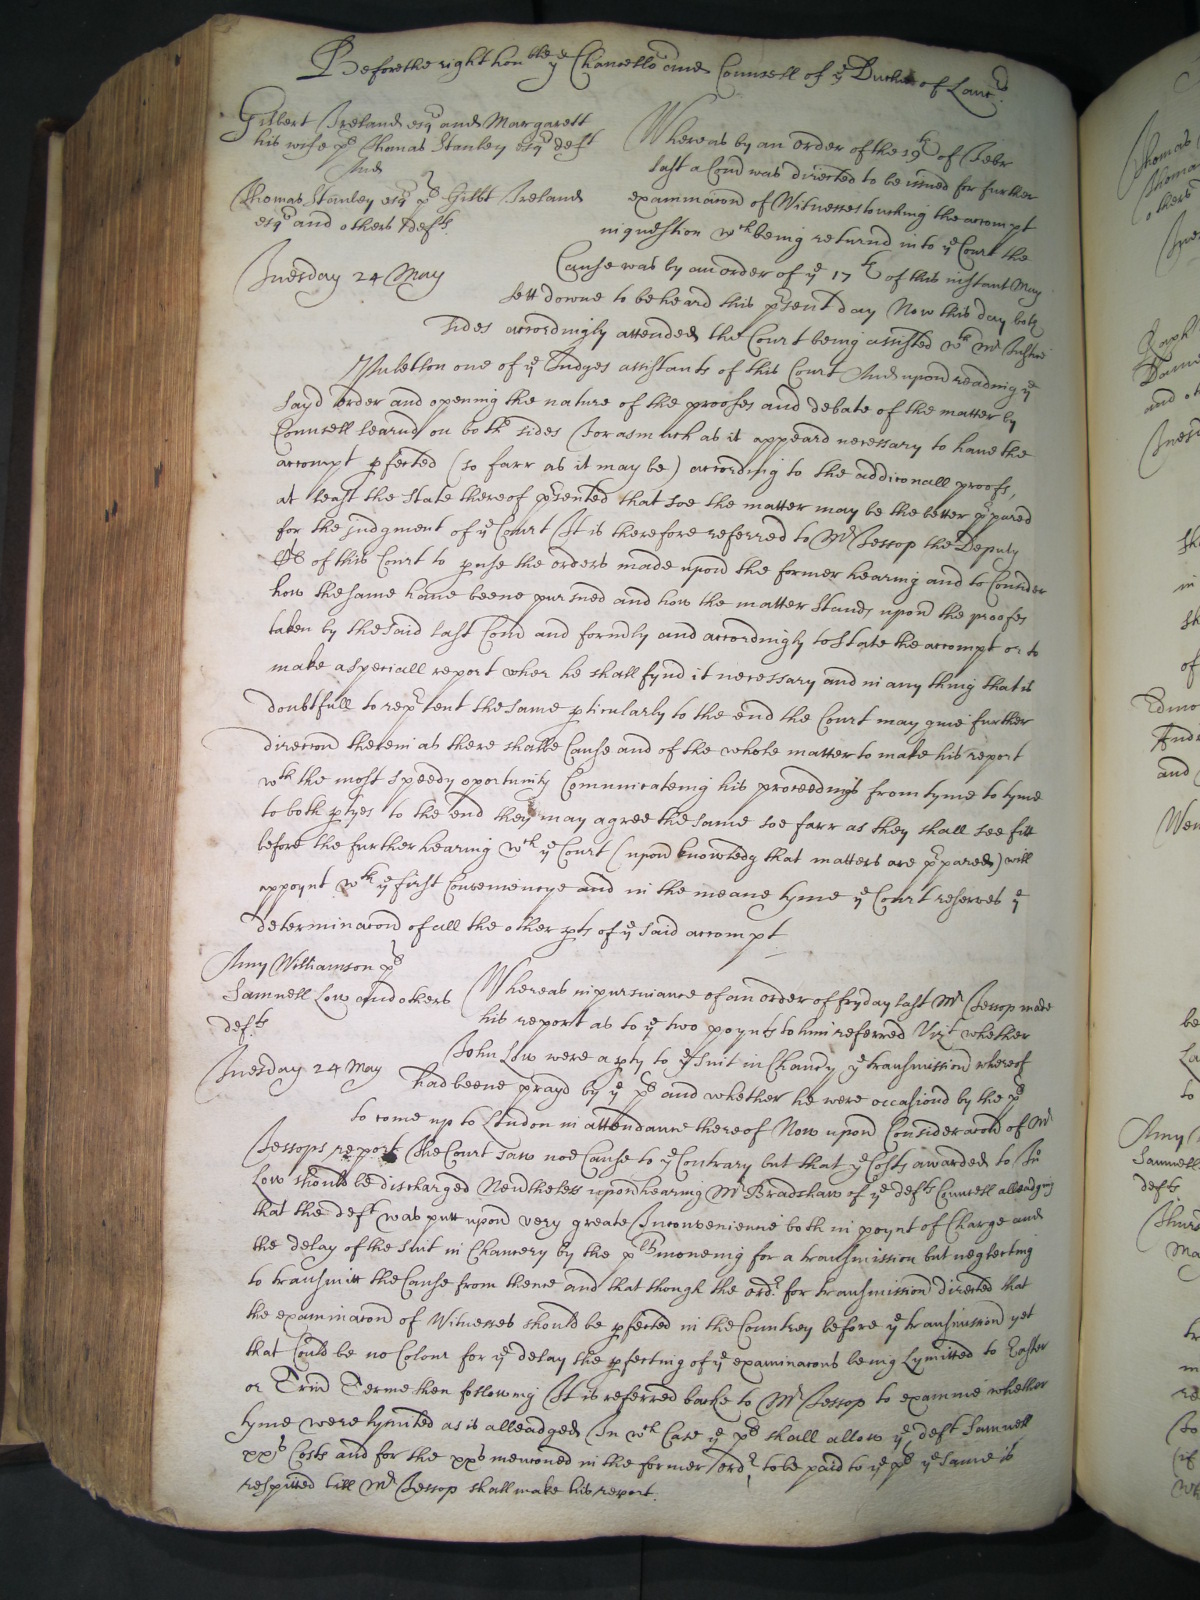 Before the right hon^ble y^e Chancello^r and Counsell of y^e Duchie of Lanc^r
Gilbert Ireland esq^r and Margarett
his wife p^ls Thomas Stanley esq^r def^t
And
Thomas Stanley esq^r p^l Gilbt Ireland
esq^r and others def^ts
Tuesday 24 May
Whereas by an order of the 19^th of Febr
last a Comd was directed to be issued for further
examinacon of Witnesses touching the accompt
in question w^ch being returnd into y^e Court the
Cause was by an order of y^e 17^th of this instant May
sett downe to be heard this p^rsent day Now this day both
sides accordingly attended the Court being assisted w^th m^r Justice
one of y^e Judges assistants of this Court And upon reading y^e
sayd order and opening the nature of the proofes and debate of the matter by
Counsell learnd on both sides Forasmuch as it appeard necessary to have the
accompt pfected (so farr as it may be) according to the addiconall proofs,
at least the state thereof p^rsented that soe the matter may be the better p^rpared
for the judgment of y^e Court It is therefore referred to M^r Jessop the Deputy
of this Court to pruse the orders made upon the former hearing and to Consider
how the same have beene pursued and how the matter stands upon the proofes
taken by the said last Comd and formdly and accordingly to state the accompt or to
make a speciall report wher he shall fynd it necessary and in any thing that is
doubtfull to rep^rsent the same pticularly to the end the Court may give further
direccon therein as there shalbe Cause and of the whole matter to make his report
w^th the most speedy oportunity Communicateing his proceedings from tyme to tyme
to both ptyes to the end they may agree the same soe farr as they shall see fitt
before the further hearing w^ch y^e Court (upon knowledg that matters are p^rpared) will
appoynt w^th y^e first Conveniencye and in the meane tyme y^e Court reserves y^e
determinacon of all the other pts of y^e said accompt
Amy Williamson p^l
Samuell Low and others
def^ts
Tuesday 24 May
Whereas in pursuance of an order of fryday last M^r Jessop made
his report as to y^e two poynts to him referred Vizt whether
John Low were a pty to y^e Suit in Chancy y^e transmission whereof
had beene prayd by y^e p^l and whether he were occasiond by the p^l
to come up to London in attendance thereof Now upon Consideracon of M^r
Jessops report The Court saw noe Cause to y^e Contrary but that y^e Costs awarded to Jn
Low should be discharged Nevthelesse upon hearing M^r Bradshaw of y^e def^ts Councell alleadging
that the def^t was putt upon very greate Inconvenience both in poynt of Charge and
the delay of the suit in Chancery by the p^lts moveing for a transmission but neglecting
to transmitt the Cause from thence and that though the ord^r for transmission directed that
the examinacon of Witnesses should be pfected in the Countrey before y^e transmission yet
that Could be no Colour for y^e delay the pfecting of y^e examinacons being lymitted to Easter
or Trin^d Terme then following It is referred backe to M^r Jessop to examine whether
tyme were lymited as is alleadged In w^ch Case y^e p^l shall allow y^e def^t Samuell
xx^s Costs and for the xx^s menconed in the former ord^r to be paid to y^e p^l y^e same is
respitted till M^r Jessop shall make his report.